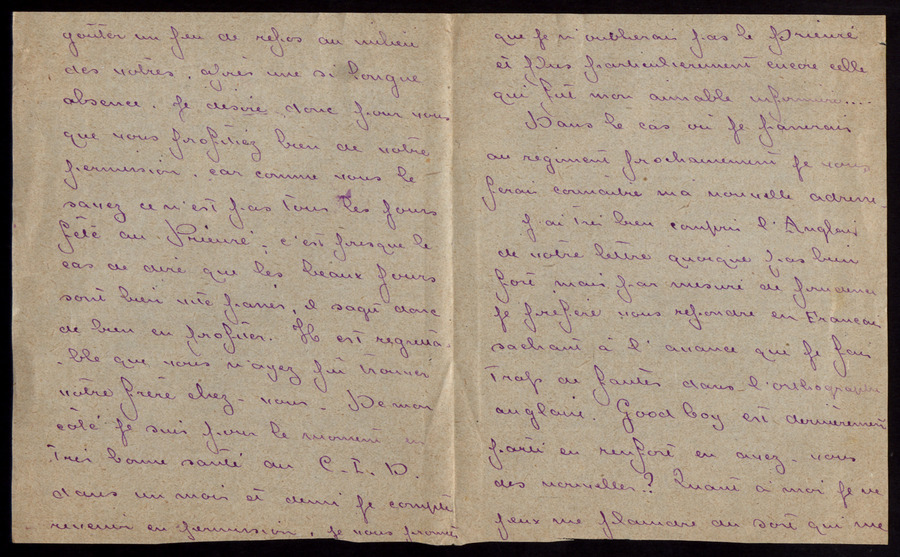 goûter un peu de repos au milieu
des votres, après une si longue
absence. Je désire donc pour vous
que vous profitiez bien de votre
permission, car comme vous le
savez ce n'est pas tous les jours
fête au Prieuré, c'est presque le
cas de dire que les beaux jours
sont bien vite passés, il sagit donc
de bien en profiter. Il est regretta-
-ble que vous n'ayez pu trouver
votre frère chez-vous. De mon
côté je suis pour le moment en
très bonne santé au C.I.D.
dans un mois et demi je compte
revenir en permission, je vous promets
que je n'oublierai pas le Prieuré
et plus particulierement encore celle
qui fut mon aimable infirmière....
Dans le cas où je passerais
au régiment prochainement je vous
ferai connaître ma nouvelle adresse
J'ai très bien compris l'Anglais
de votre lettre quoique pas bien
fort mais par mesure de prudence
je préfère vous repondre en Francais
sachant à l'avance que je fais
trop de fautes dans l'orthographe
anglaise. Good boy est dernièrement
parti en renfort en avez-vous
des nouvelles?? Quant à moi je ne
peux me plaindre du sort qui me